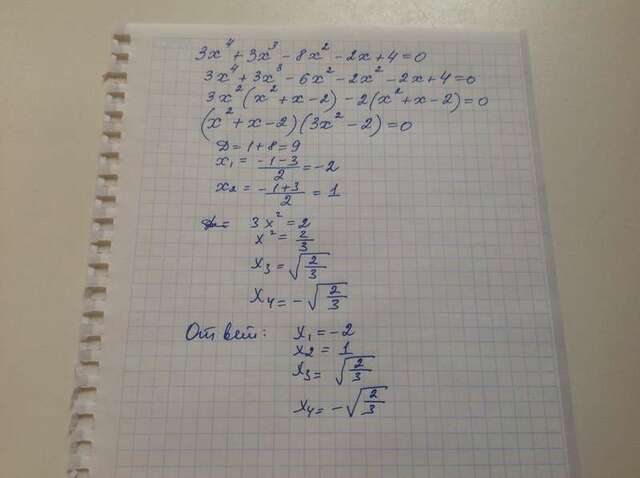 3x⁴ + 3x³ - 8x² - 2x + 4 = 0
3x⁴ + 3x³ - 6x² - 2x² - 2x + 4 = 0
3x² (x² + x - 2) - 2 (x² + x - 2) = 0
(x² + x - 2) (3x² - 2) = 0
D = 1 + 8 = 9
x₁ = (-1-3)/2 = -2
x₂ = (-1+3)/2 = 1
3x² = 2
x² = 2/3
x₃ = √(2/3)
x₄ = -√(2/3)
Ответ: x₁ = -2
x₂ = 1
x₃ = √(2/3)
x₄ = -√(2/3)